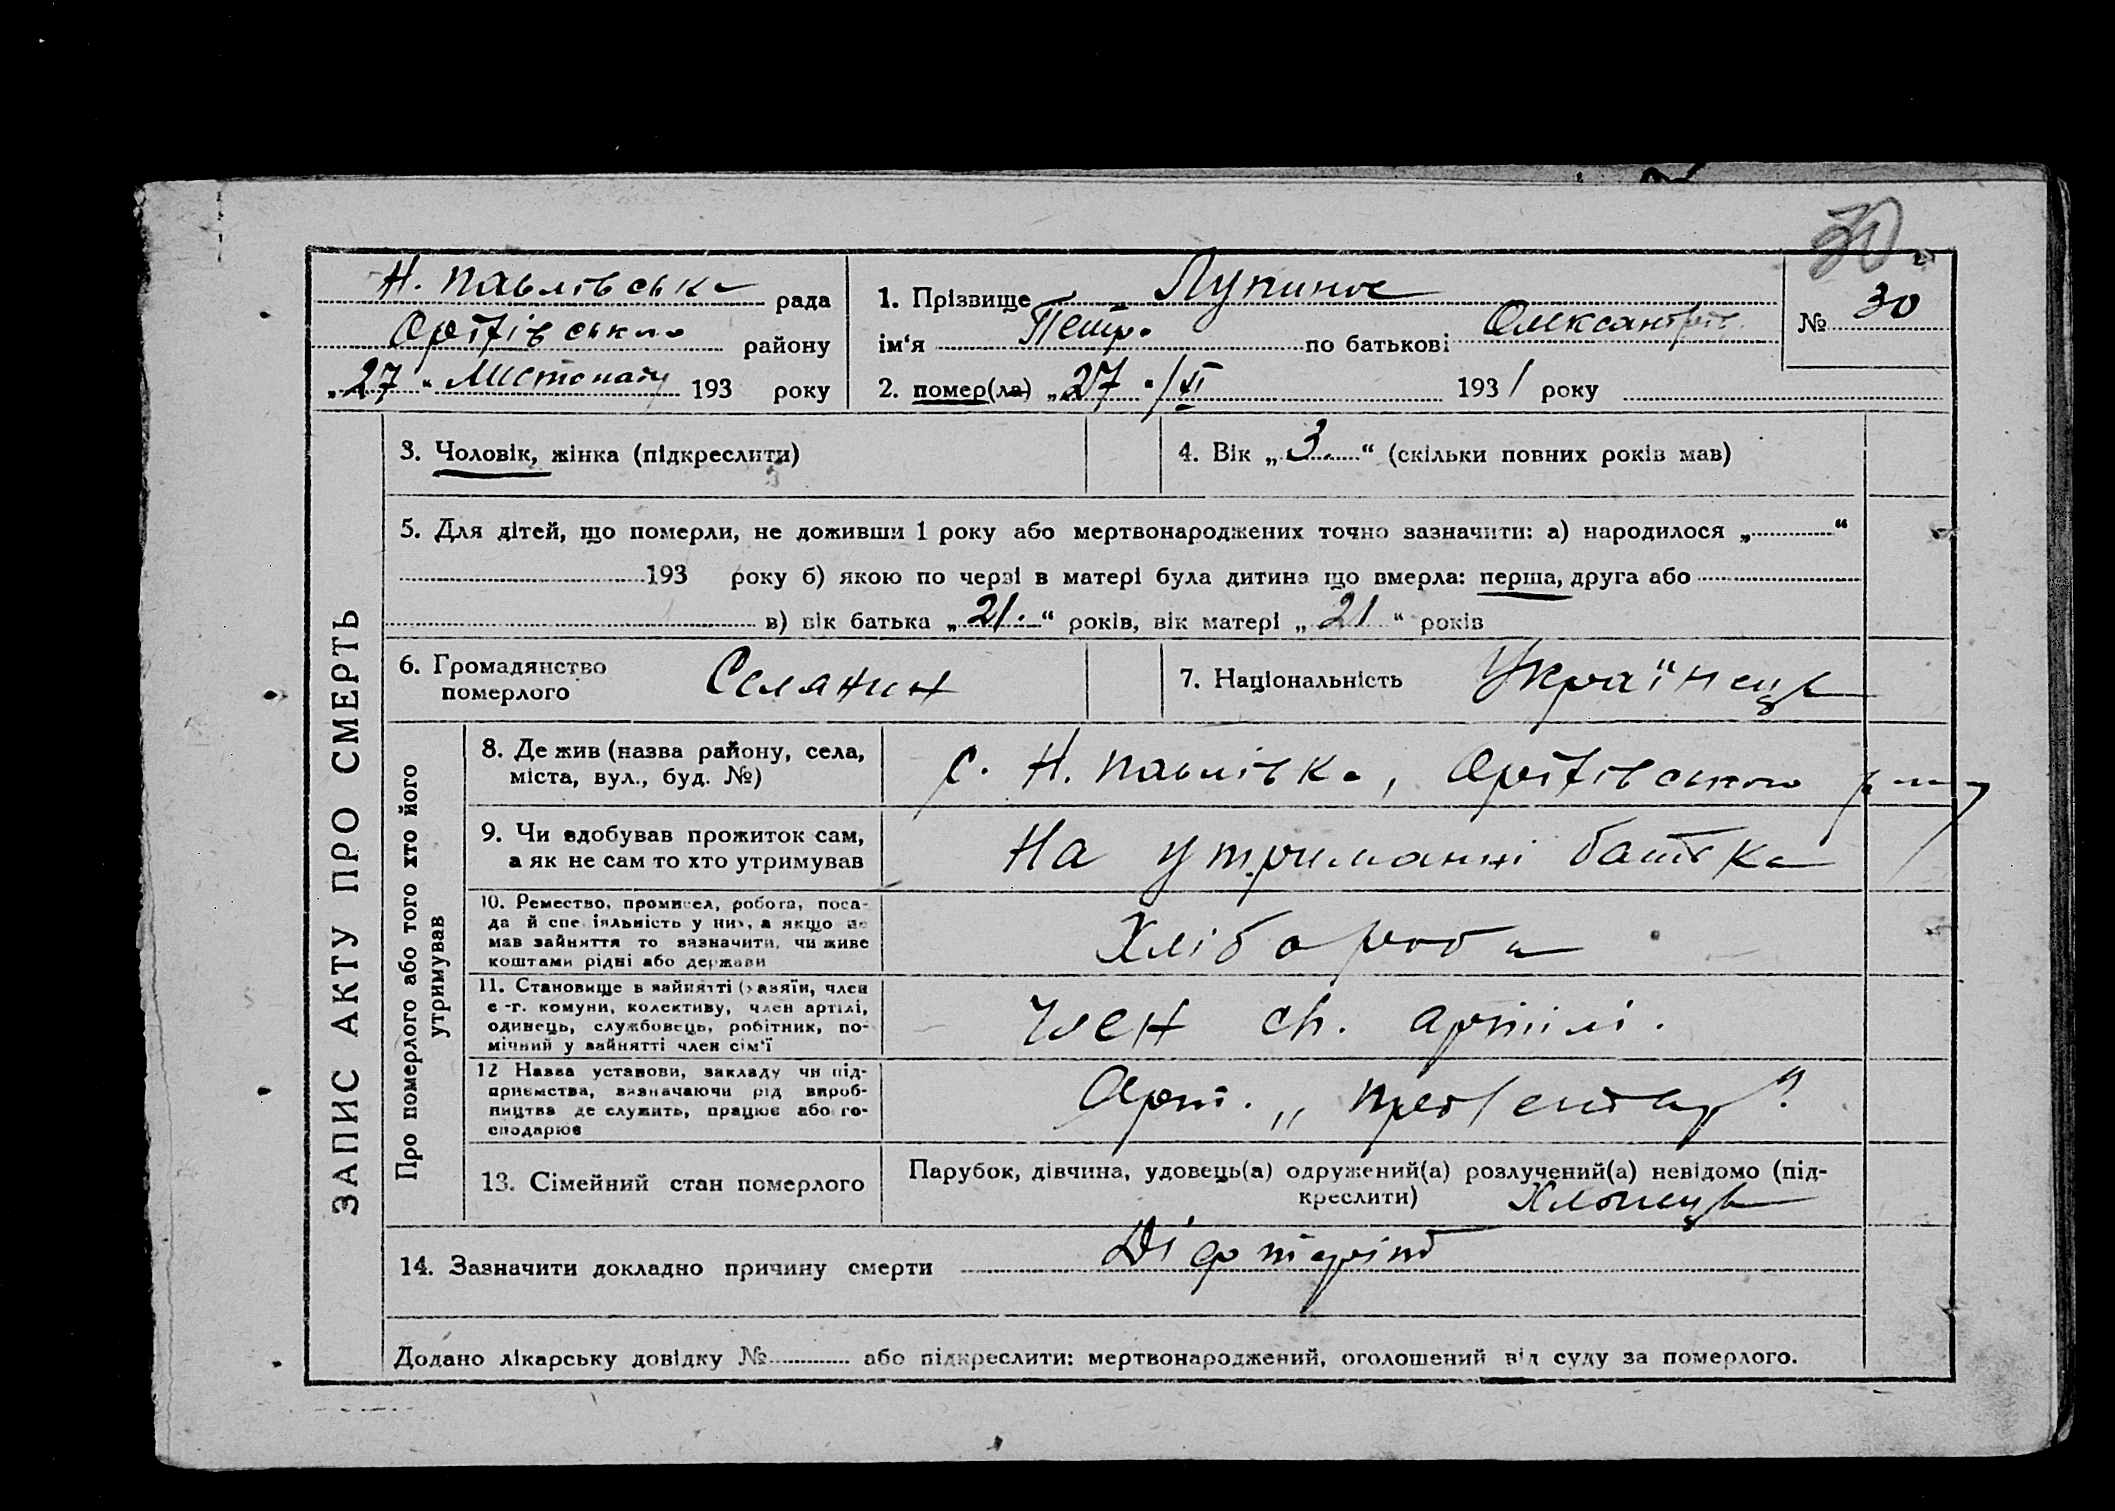 30
Н. Павлівська рада
району
„27“ Листопаду 193 року
1. Прізвище
ім‘я Петро по батькові Олександров.
2. помер(ла) „27“/XI 1931 року
№ 30
ЗАПИС АКТУ ПРО СМЕРТЬ
3. Чоловік, жінка (підкреслити)
4. Вік „3.“ (скільки повних років мав)
5. Для дітей, що померли, не доживши 1 року або мертвонароджених точно зазначити: а) народилося „ “
193 року б) якою по черзі в матері була дитина що вмерла: перша, друга або
в) вік батька „21.“ років, вік матері „21“ років
6. Громадянство
померлого
Селянин
7. Національність Українець
Про померлого або того хто його
утримував
8. Де жив (назва району, села,
міста, вул., буд. №)
с. Н. Павлівка,
9. Чи здобував прожиток сам,
а як не сам то хто утримував
На утриманні батька
10. Ремество, промисел, робота, поса-
да й спеціяльність у них, а якщо не
мав зайняття то зазначити, чи живе
коштами рідні або держави
Хлібороба
11. Становище в зайнятті (хазяїн, член
с.-г. комуни, колективу, член артілі,
одинець, службовець, робітник, по-
мічний у зайнятті член сім‘ї
член сг. артілі.
12 Назва установи, закладу чи під-
приємства, зазначаючи рід вироб-
ництва де служить, працює або го-
сподарює
Арт.
13. Сімейний стан померлого
Парубок, дівчина, удовець(а) одружений(а) розлучений(а) невідомо (під-
креслити) Хлопець
14. Зазначити докладно причину смерти Діфтиріт
Додано лікарську довідку № або підкреслити: мертвонароджений, оголошений від суду за померлого.